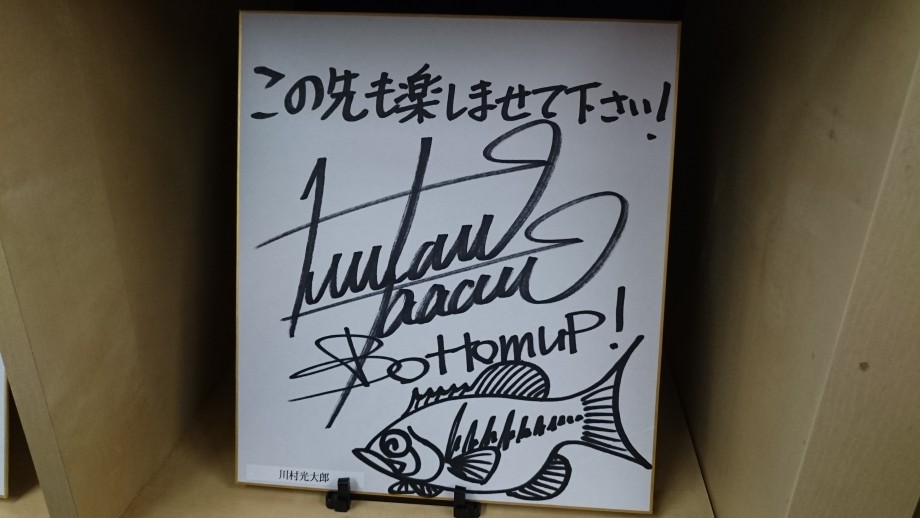 この先も楽しませて下さい!
Bottomup!
川村光大郎